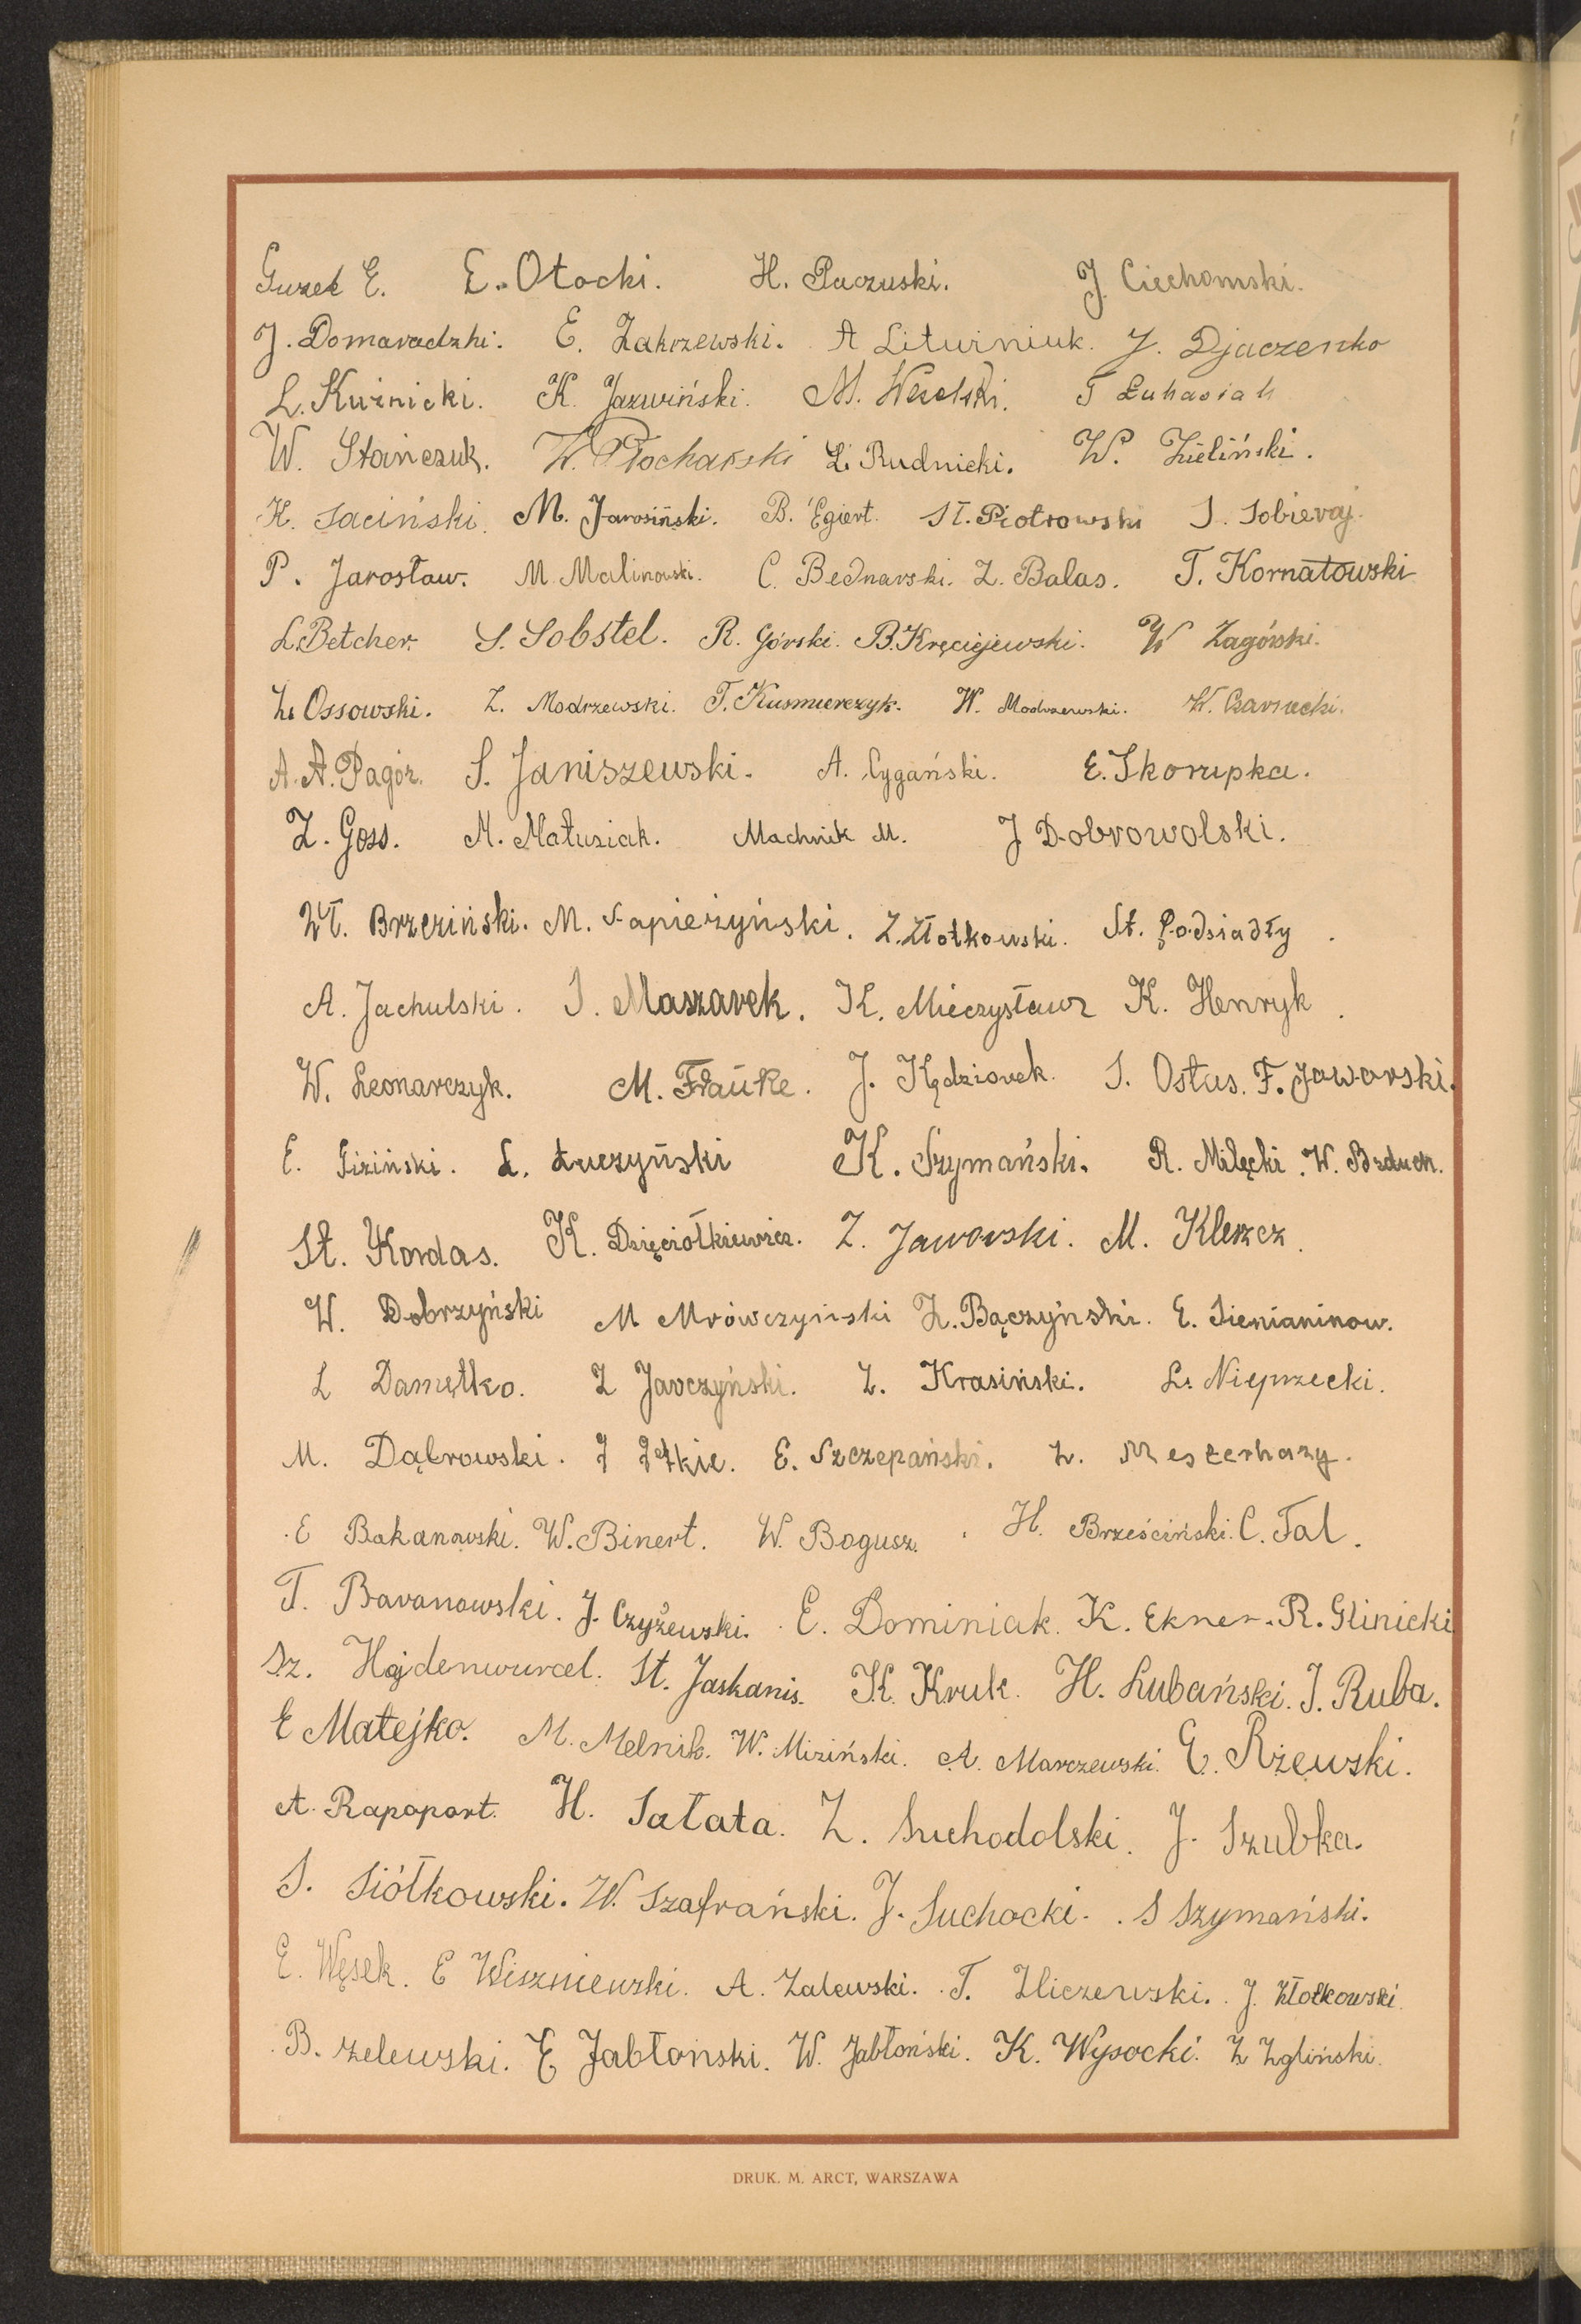 Guzek E. E. Otocki. H. Paczuski. J. Ciechomski.
J. Domaradzki. E. Zakrzewski. A Lituiniuk. J. Djaczenko
L. Kuźnicki. K. Jaźwiński. M. T Łukasiak
W. Stańczuk. W. Płocharski L. Rudnicki. W. Zieliński.
K. Saciński. M. Jarosiński. B. Egiert. St. Piotrowski S. Sobieraj.
P. Jarosław. M. Malinowski. C. Bednarski. Z. Balas. T. Kornatowski
L. Betcher. S. Sobstel. R. Górski. B. Kręciejewski. W Zagórski.
Z. Ossowski. Z. Modrzewski. T. Kusmierczyk. W. Modrzewski. K. Czarnecki.
A. A. Pagór. S. Janiszewski. A. Cygański. E. Skorupka.
Z. Goss. M. Matusiak. Machnik M. J Dobrowolski.
Wł. Brzeziński. M. Sapieżyński. Z. Złotkowski. St. Podsiadły.
A. Jachulski. S. Maszarek. K. Mieczysław K. Henryk.
W. Leonarczyk. M. J. Kędziorek. S. Ostus. F. Jaworski.
E. Giziński. L. Łuczyński K. Szymański. R. Milęcki. W. Bzduch.
St. Kordas. K. Dzięciołkiewicz. Z. Jaworski. M. Kleszcz.
W. Dobrzyński M Mrówczyński Z. Bączyński. E. Sienianinow.
L Damętko. Z Jarczyński. Z. Krasiński. L. Nieprzecki.
M. Dąbrowski. J E. Szczepański. Z. Mesterhazy.
E Bakanowski. W. Binert. W. Bogusz. H. Brześciński. C. Fal.
T. Baranowski. J. Czyżewski. E. Dominiak. K. Ekner. R. Glinicki
Sz. Hajdenwurcel. St. Jaskanis. K. Kruk. H. Lubański. J. Ruba.
E Matejko. M. Melnik. W. Miziński. A. Marczewski. E. Rżewski.
A. Rapoport. H. Sałata. Z. Suchodolski. J. Szubka.
S. Siółkowski. W. Szafrański. J. Suchocki. S Szymański.
E. Węsek. E Wiszniewski. A. Zalewski. T. Zliczewski. J. Złotkowski.
B. Żelewski. E Jabłoński. W. Jabłoński. K. Wysocki. Z Zgliński.
DRUK. M. ARCT, WARSZAWA